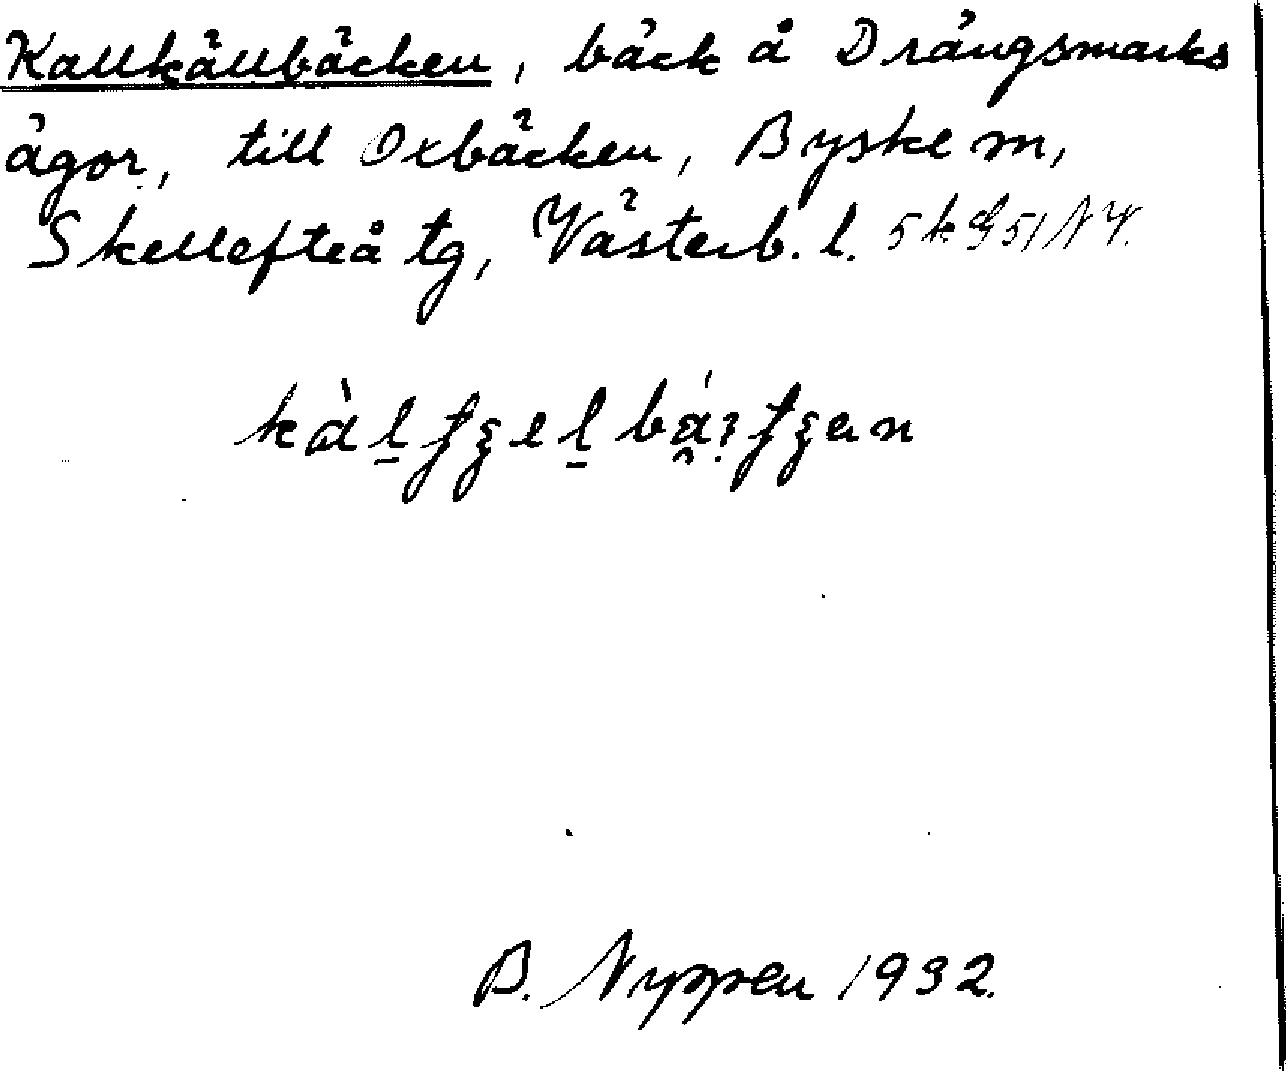 Kallkällbäcken, bäck å Drängsmarks
ägor, till Oxbäcken, Byske sn,
Skellefteå tg, Västerb. l.
B. Nyppen 1932.